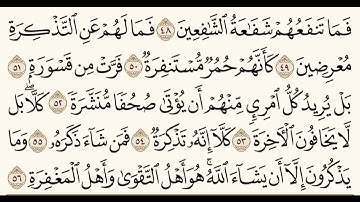 فَمَا تَنفَعُهُمْ شَفَٰعَةُ ٱلشَّٰفِعِينَ ٤٨ فَمَا لَهُمْ عَنِ ٱلتَّذْكِرَةِ
مُعْرِضِينَ ٤٩ كَأَنَّهُمْ حُمُرٌ مُّسْتَنفِرَةٌ ٥٠ فَرَّتْ مِن قَسْوَرَةٍۭ ٥١
بَلْ يُرِيدُ كُلُّ ٱمْرِئٍ مِّنْهُمْ أَن يُؤْتَىٰ صُحُفًا مُّنَشَّرَةً ٥٢ كَلَّا ۖ بَل
لَّا يَخَافُونَ ٱلْءَاخِرَةَ ٥٣ كَلَّآ إِنَّهُۥ تَذْكِرَةٌ ٥٤ فَمَن شَآءَ ذَكَرَهُۥ ٥٥ وَمَا
يَذْكُرُونَ إِلَّآ أَن يَشَآءَ ٱللَّهُ ۚ هُوَ أَهْلُ ٱلتَّقْوَىٰ وَأَهْلُ ٱلْمَغْفِرَةِ ٥٦